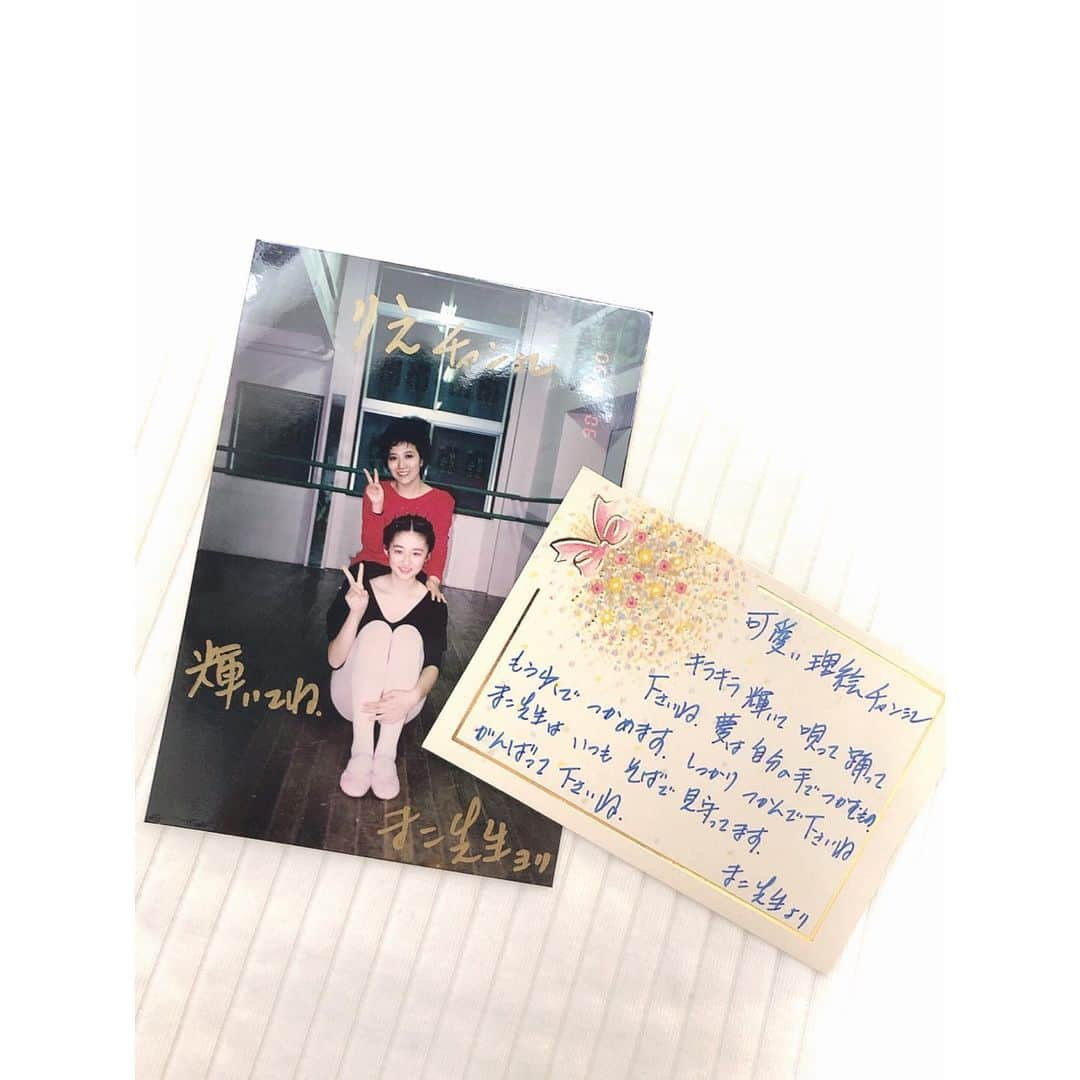 りえチャンへ
輝いてね.
まこ先生ヨリ
可愛い理絵チャンへ
キラキラ輝いて唄って踊って
下さいね. 夢は自分の手でつかむもの.
もう少しでつかめます. しっかりつかんで下さいね
まこ先生はいつもそばで見守ってます.
がんばって下さいね.
まこ先生より